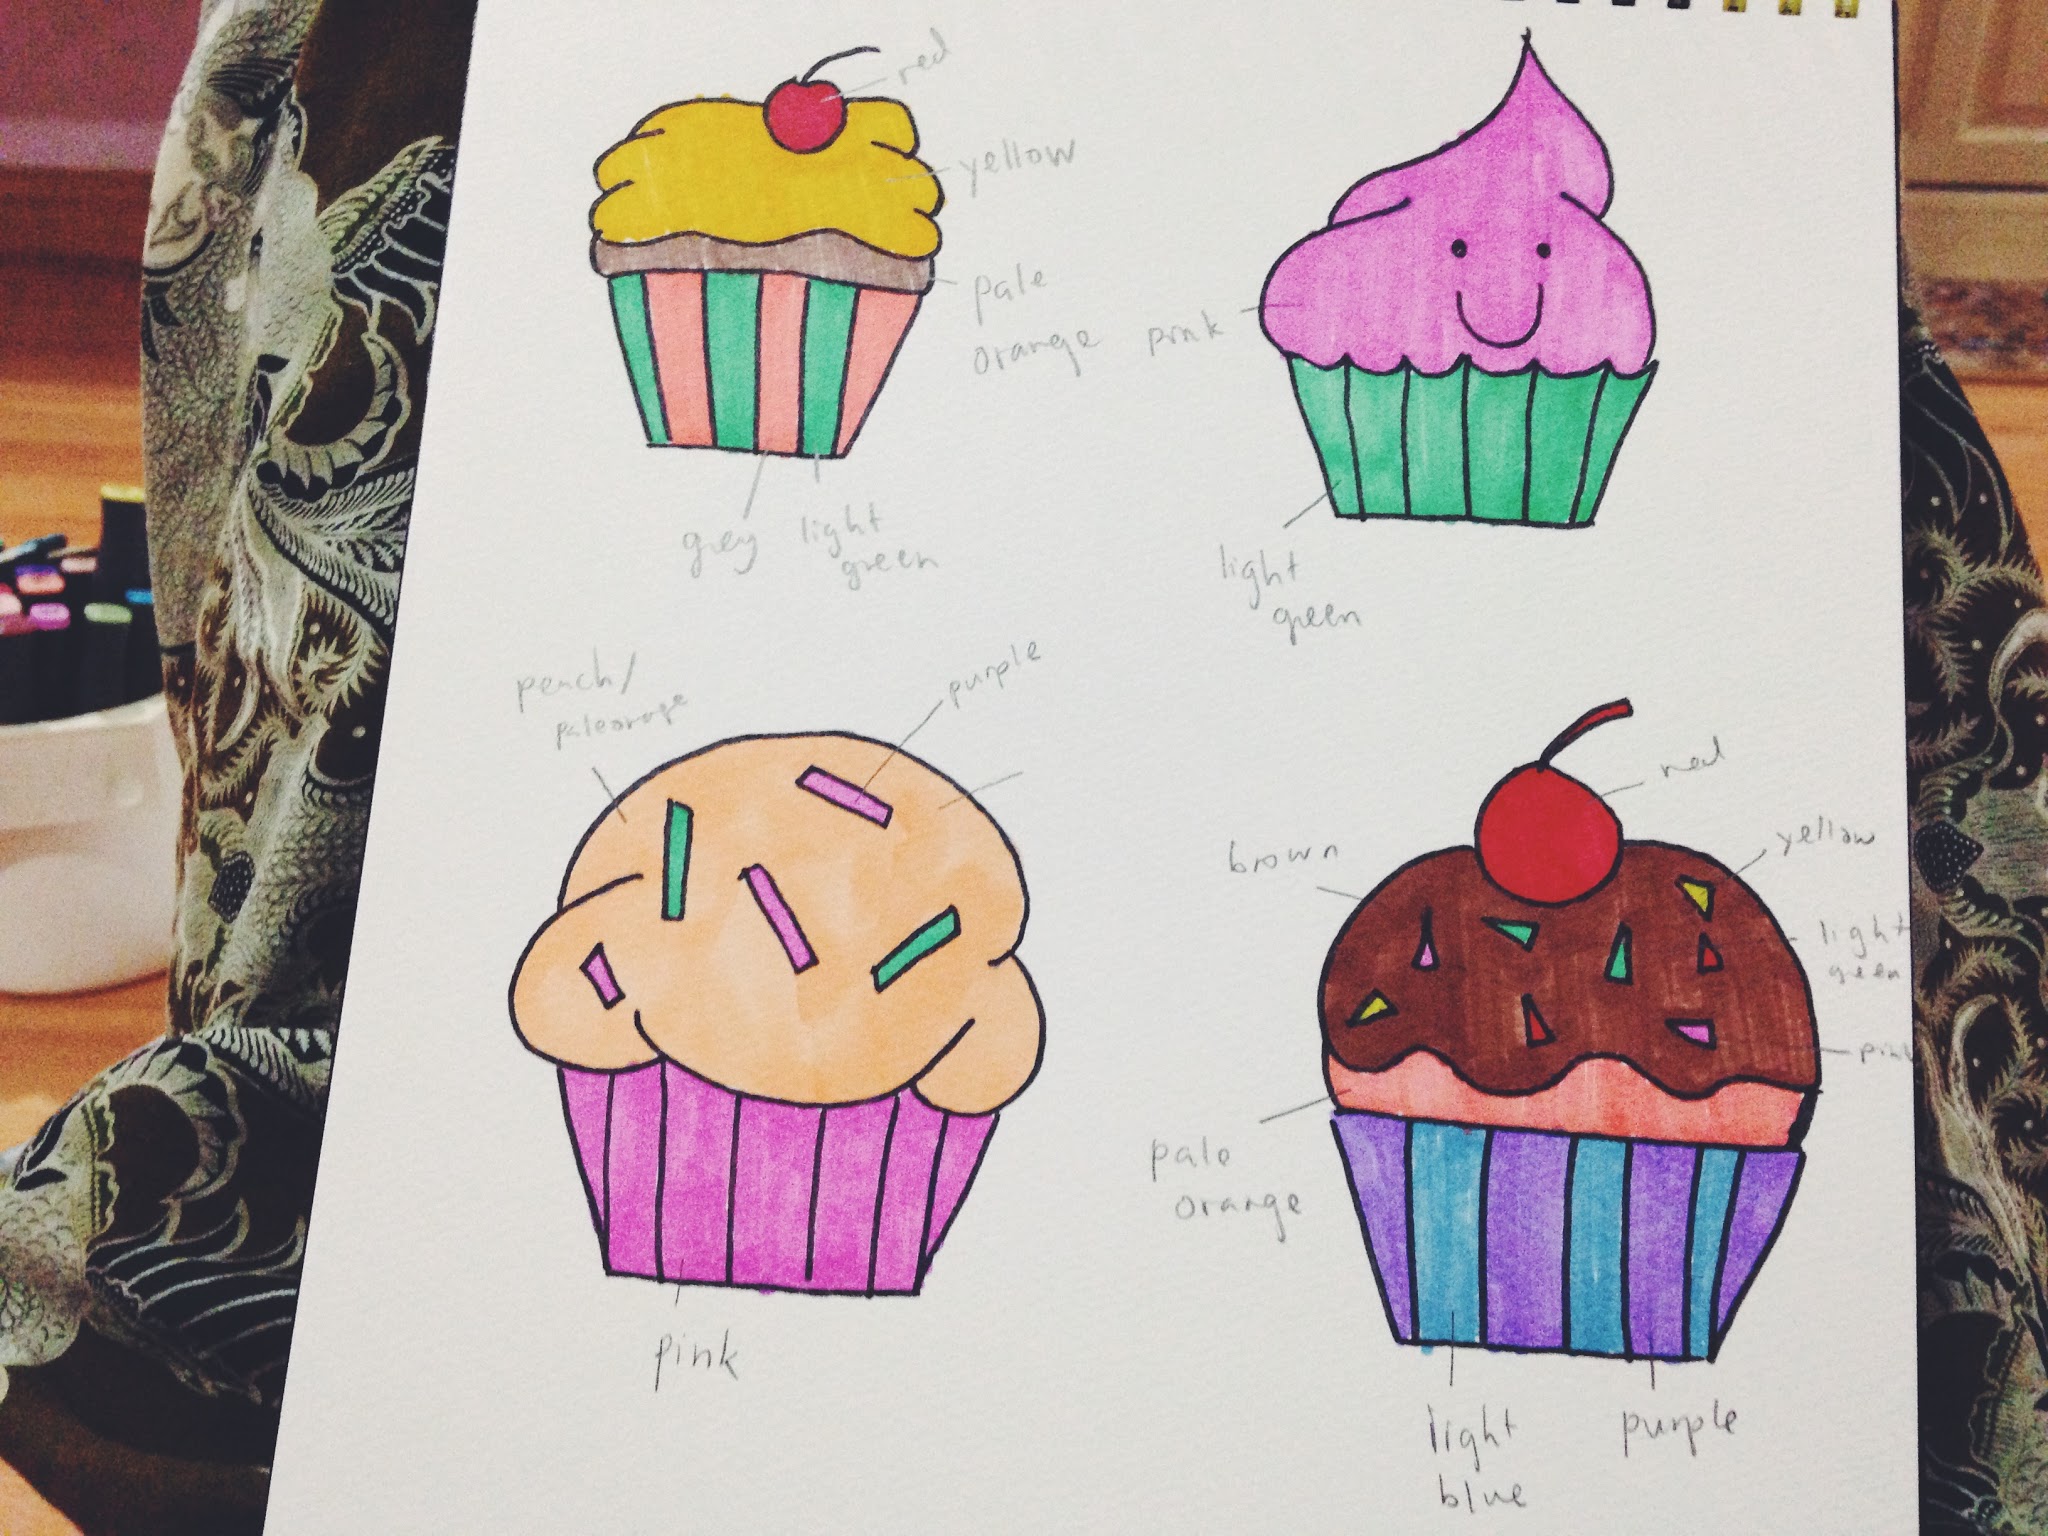 red
yellow
pale
orange
grey
light
green
pink
light
green
peach/
pale orange
purple
pink
red
brown
yellow
light
green
pink
pale
orange
light
blue
purple